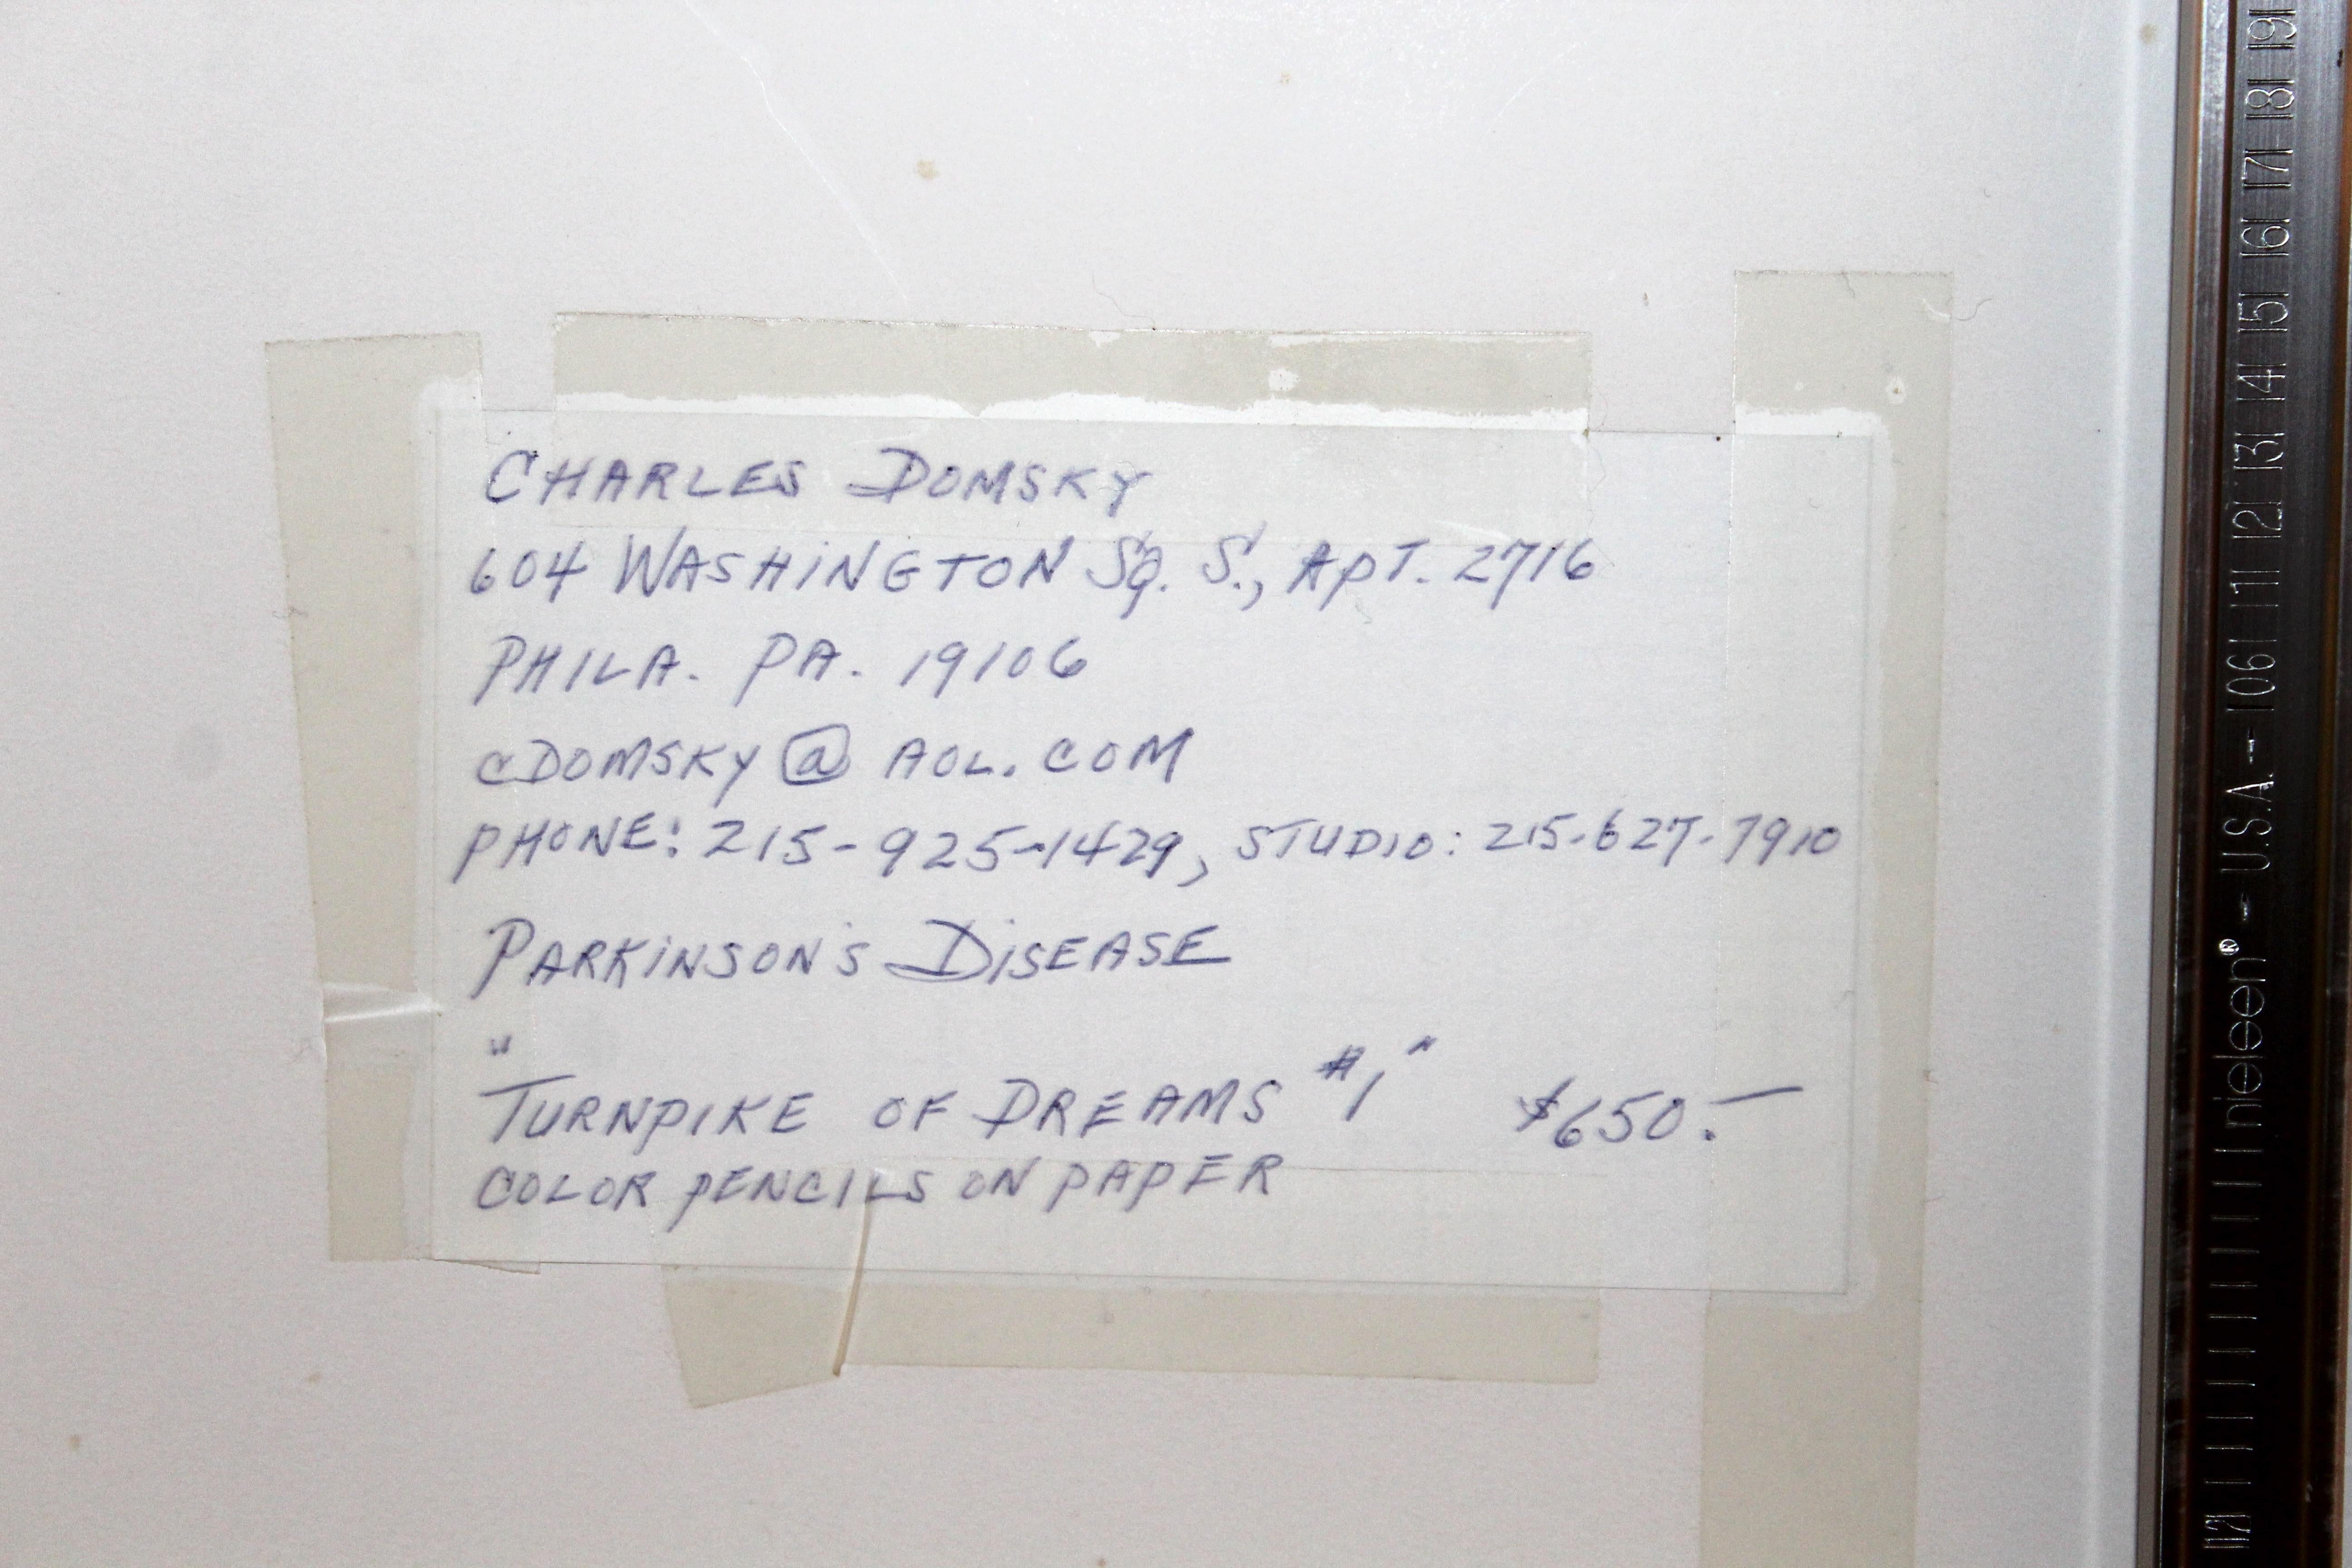 CHARLES DOMSKY
604 WASHINGTON SQ. S., APT. 2716
PHILA. PA. 19106
CDOMSKY@AOL.COM
PHONE: 215-925-1429, STUDIO: 215-627-7910
PARKINSON'S DISEASE
"TURNPIKE OF DREAMS #1" $650.—
COLOR PENCILS ON PAPER
nielsen® - U.S.A. -- 106| 11| 12| 13| 14| 15| 16| 17| 18| 19|